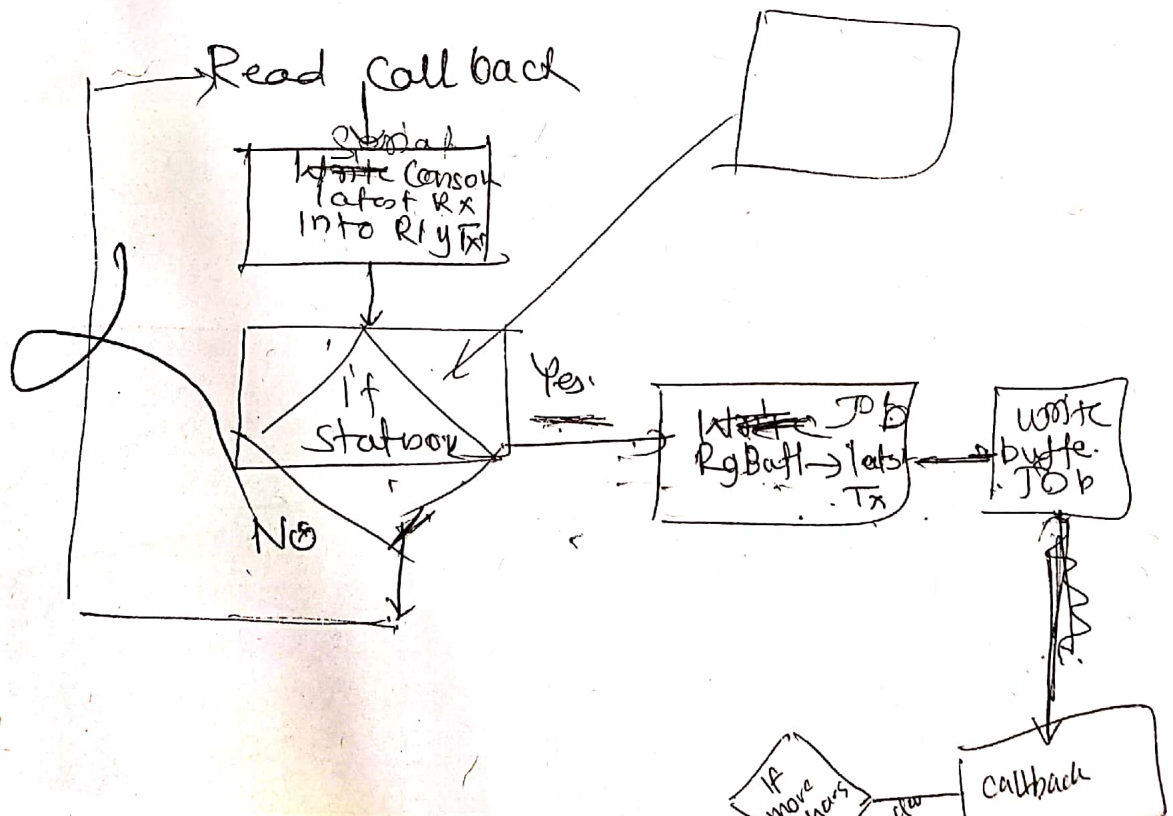 Read Call back
Serial
Write Conson
latest Rx
Into Rly Tx
If
Statvor
Yes.
No
Write JOb
RgBaff → lats
Tx
Write
buffe.
JOb
Callback
If
more